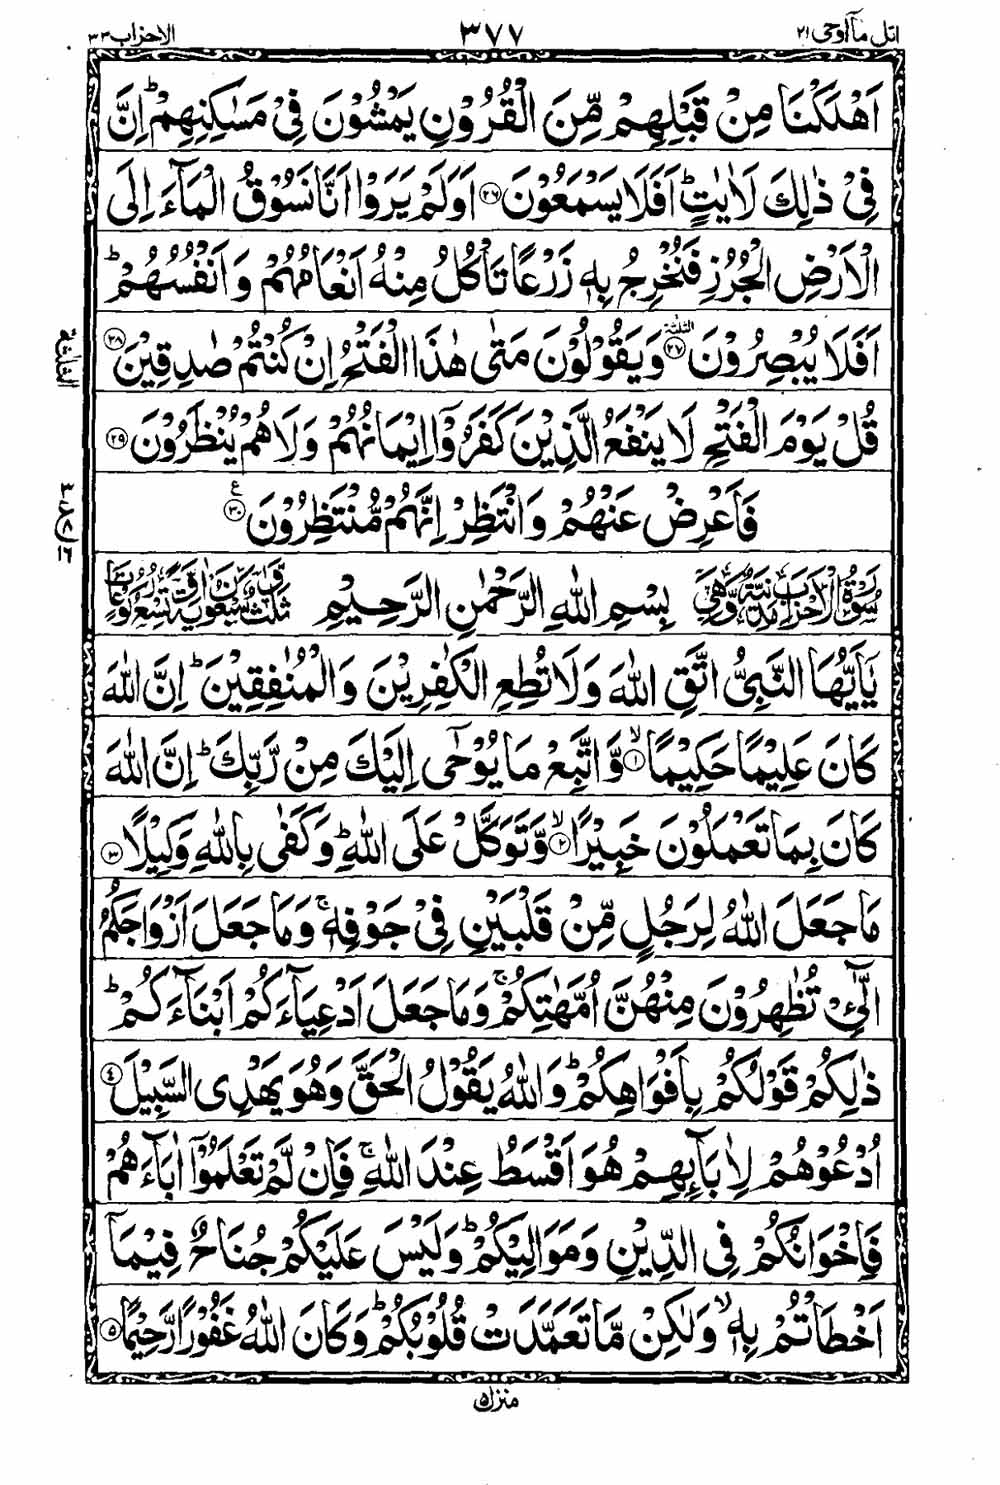 اتل مآ اوحی ۲۱ ۳۷۷ الاحزاب ۳۳
اَهْلَكْنَا مِنْ قَبْلِهِمْ مِّنَ الْقُرُوْنِ يَمْشُوْنَ فِىْ مَسٰكِنِهِمْ ؕ اِنَّ
فِىْ ذٰلِكَ لَاٰيٰتٍ ؕ اَفَلَا يَسْمَعُوْنَ ۲۶ اَوَلَمْ يَرَوْا اَنَّا نَسُوْقُ الْمَآءَ اِلَى
الْاَرْضِ الْجُرُزِ فَنُخْرِجُ بِهٖ زَرْعًا تَاْكُلُ مِنْهُ اَنْعَامُهُمْ وَاَنْفُسُهُمْ ؕ
اَفَلَا يُبْصِرُوْنَ ۲۷ الثلثة وَيَقُوْلُوْنَ مَتٰى هٰذَا الْفَتْحُ اِنْ كُنْتُمْ صٰدِقِيْنَ ۲۸
قُلْ يَوْمَ الْفَتْحِ لَا يَنْفَعُ الَّذِيْنَ كَفَرُوْۤا اِيْمَانُهُمْ وَلَا هُمْ يُنْظَرُوْنَ ۲۹
فَاَعْرِضْ عَنْهُمْ وَانْتَظِرْ اِنَّهُمْ مُّنْتَظِرُوْنَ ۳۰ ع
سُوْرَةُ الْاَحْزَابِ مَدَنِيَّةٌ وَّهِىَ بِسْمِ اللهِ الرَّحْمٰنِ الرَّحِيْمِ ثَلٰثٌ وَّسَبْعُوْنَ اٰيَةً وَّتِسْعُ رُكُوْعَاتٍ
يٰۤاَيُّهَا النَّبِىُّ اتَّقِ اللهَ وَلَا تُطِعِ الْكٰفِرِيْنَ وَالْمُنٰفِقِيْنَ ؕ اِنَّ اللهَ
كَانَ عَلِيْمًا حَكِيْمًا ۙ ۱ وَّاتَّبِعْ مَا يُوْحٰۤى اِلَيْكَ مِنْ رَّبِّكَ ؕ اِنَّ اللهَ
كَانَ بِمَا تَعْمَلُوْنَ خَبِيْرًا ۙ ۲ وَّتَوَكَّلْ عَلَى اللهِ ؕ وَكَفٰى بِاللهِ وَكِيْلًا ۳
مَا جَعَلَ اللهُ لِرَجُلٍ مِّنْ قَلْبَيْنِ فِىْ جَوْفِهٖ ۚ وَمَا جَعَلَ اَزْوَاجَكُمُ
الّٰٓـِٔىْ تُظٰهِرُوْنَ مِنْهُنَّ اُمَّهٰتِكُمْ ۚ وَمَا جَعَلَ اَدْعِيَآءَكُمْ اَبْنَآءَكُمْ ؕ
ذٰلِكُمْ قَوْلُكُمْ بِاَفْوَاهِكُمْ ؕ وَاللهُ يَقُوْلُ الْحَقَّ وَهُوَ يَهْدِى السَّبِيْلَ ۴
اُدْعُوْهُمْ لِاٰبَآئِهِمْ هُوَ اَقْسَطُ عِنْدَ اللهِ ۚ فَاِنْ لَّمْ تَعْلَمُوْۤا اٰبَآءَهُمْ
فَاِخْوَانُكُمْ فِى الدِّيْنِ وَمَوَالِيْكُمْ ؕ وَلَيْسَ عَلَيْكُمْ جُنَاحٌ فِيْمَاۤ
اَخْطَاْتُمْ بِهٖ ۙ وَلٰكِنْ مَّا تَعَمَّدَتْ قُلُوْبُكُمْ ؕ وَكَانَ اللهُ غَفُوْرًا رَّحِيْمًا ۵
الثلثة
ع
۱۶
منزل ۵